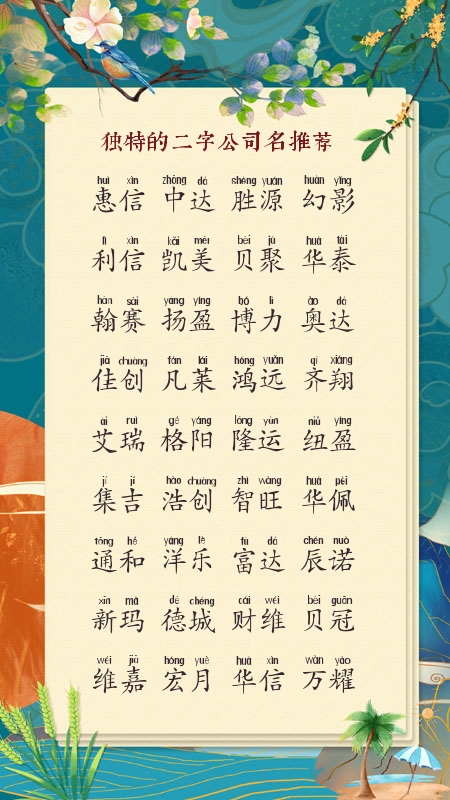 独特的二字公司名推荐
huì xìn zhōng dá shèng yuán huàn yǐng
惠信 中达 胜源 幻影
lì xìn kǎi měi bèi jù huá tài
利信 凯美 贝聚 华泰
hàn sài yáng yíng bó lì ào dá
翰赛 扬盈 博力 奥达
jiā chuàng fán lái hóng yuǎn qí xiáng
佳创 凡莱 鸿远 齐翔
ài ruì gé yáng lóng yùn niǔ yíng
艾瑞 格阳 隆运 纽盈
jí jí hào chuàng zhì wàng huá pèi
集吉 浩创 智旺 华佩
tōng hé yáng lè fù dá chén nuò
通和 洋乐 富达 辰诺
xīn mǎ dé chéng cái wéi bèi guān
新玛 德城 财维 贝冠
wéi jiā hóng yuè huá xìn wàn yào
维嘉 宏月 华信 万耀